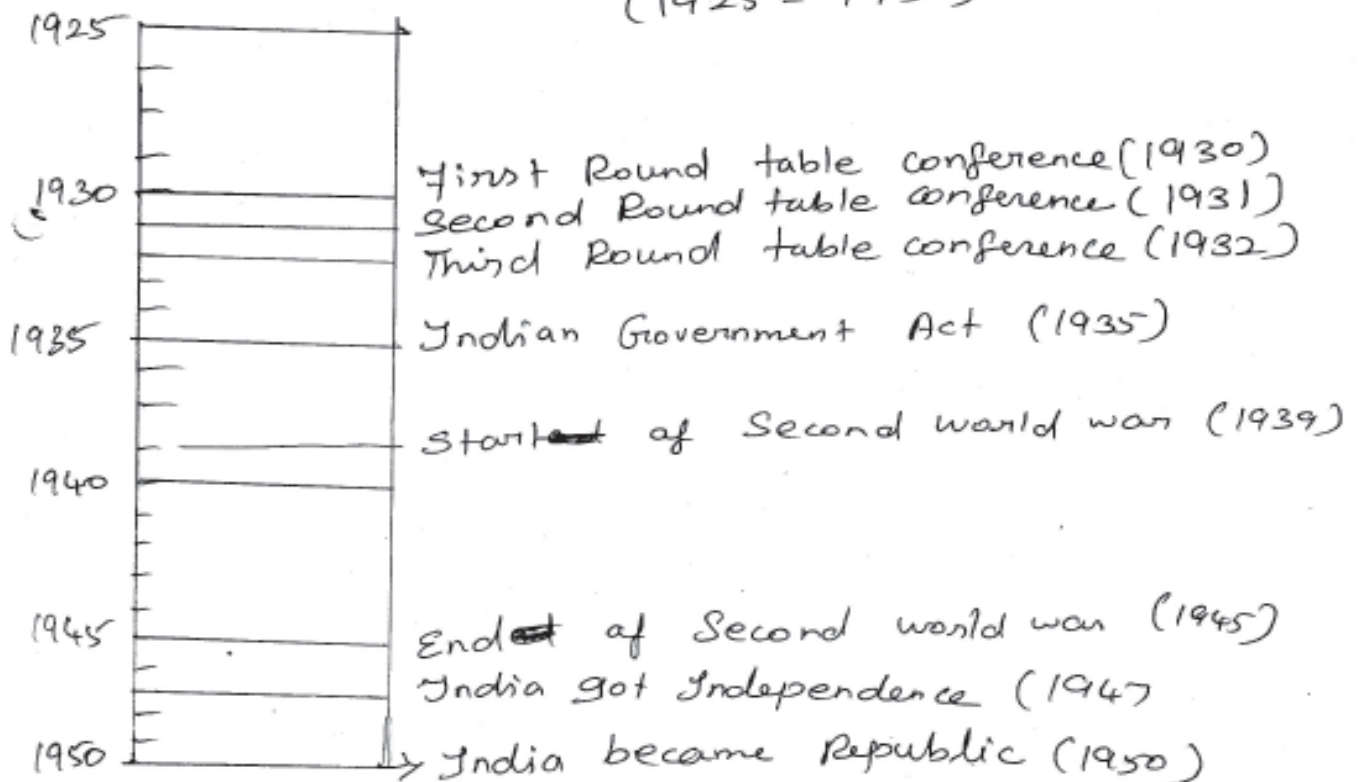 1925
First Round table conference (1930)
1930
Second Round table conference (1931)
Third Round table conference (1932)
1935 Indian Government Act (1935)
Start of Second world war (1939)
1940
1945 End of Second world war (1945)
India got Independence (1947
1950 India became Republic (1950)